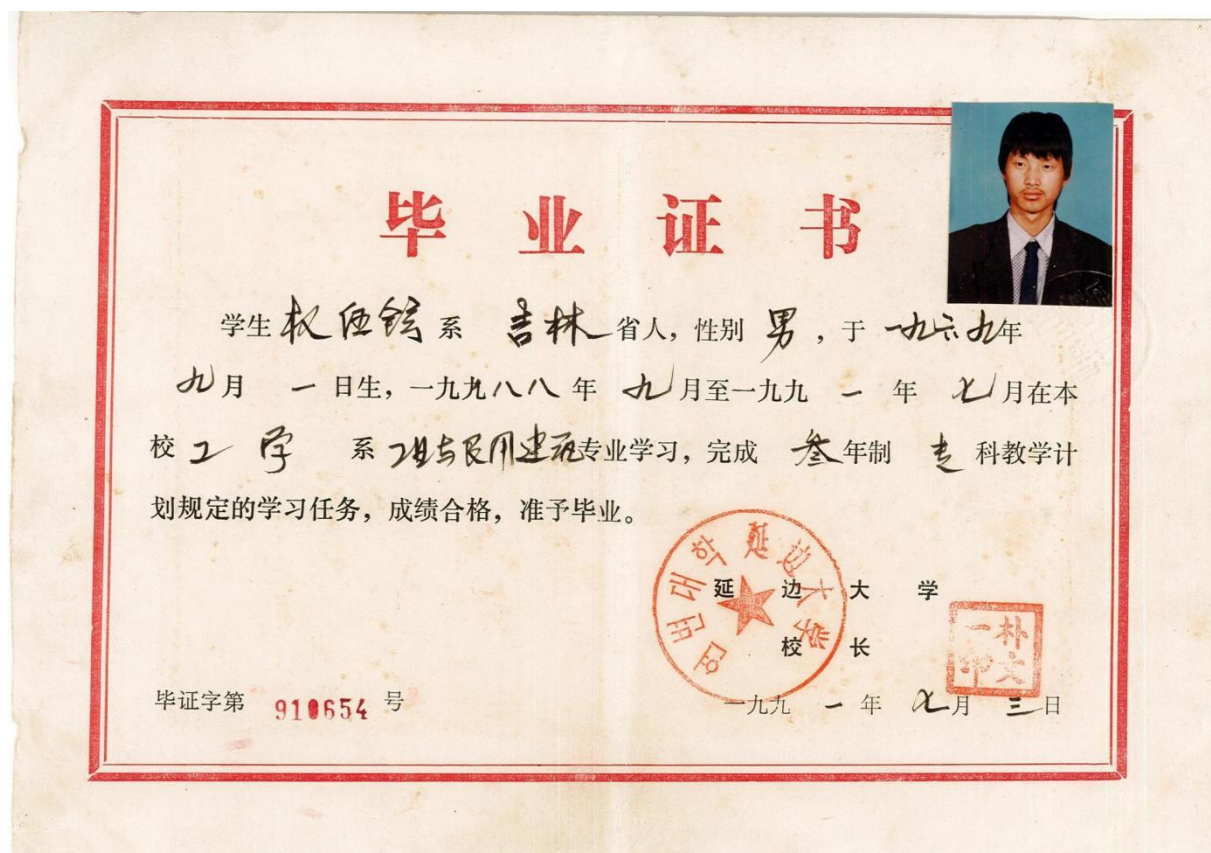 毕业证书
学生 权 系 吉林 省人，性别 男，于 一九六九年
九月 一 日生，一九九八八 年 九月至一九九 一 年 七月在本
校 工 学 系 工业与民用建筑专业学习，完成 叁年制 专 科教学计
划规定的学习任务，成绩合格，准予毕业。
연변대학 延边大学
延边大学
校长
朴文一印
毕证字第 910654 号
一九九 一 年 七月 三日